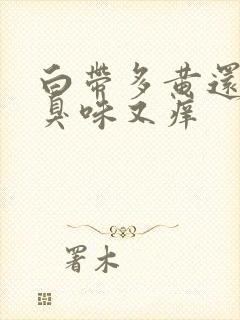 白帶多黃還
臭味又痒
署木